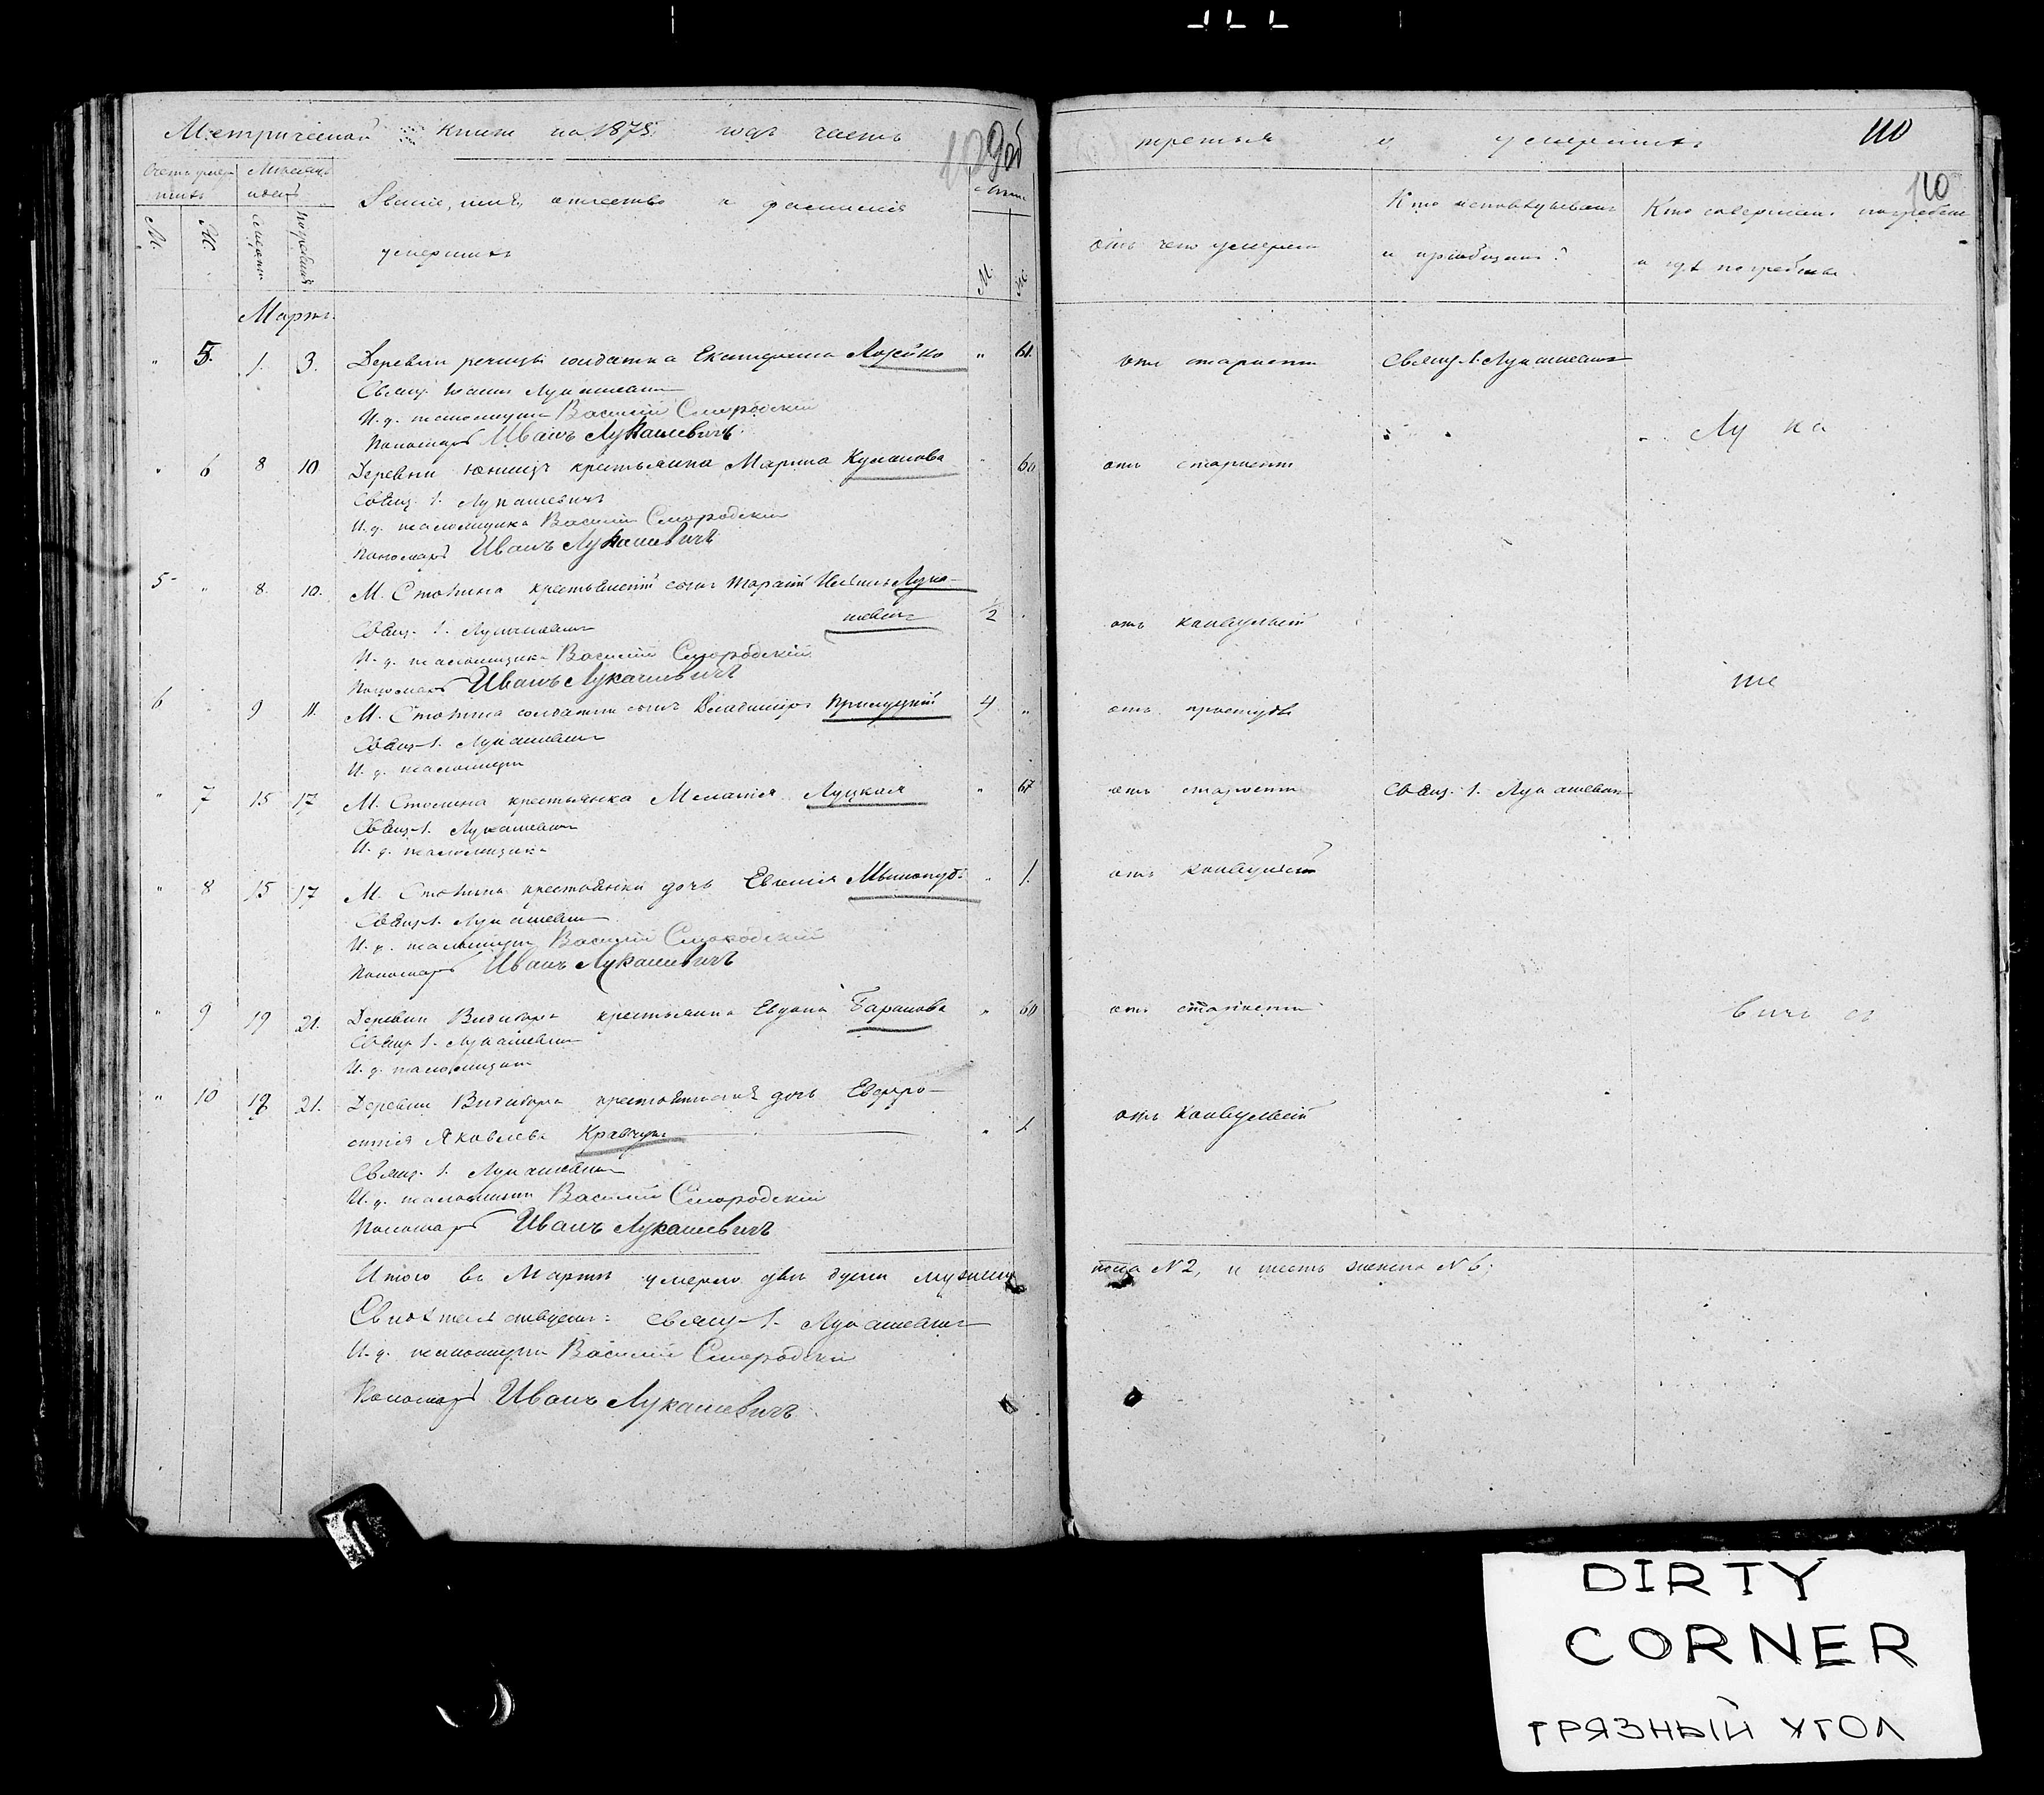 Метрической книги на 1875 годъ часть
109об
Счетъ умер
шихъ
Мѣсяцъ
и день
Званіе, имя, отчество и фамилія
умершихъ
Лѣта
М.
Ж.
смерти
погребенія
М.
Ж.
Мартъ.
" 5. 1. 3. Деревни Речицы солдатка Екатерина Лозейко " 61.
Свящ. Іоаннъ Лукашевичъ
И. д. псаломщика Василій Смородскій
Пономарь Иванъ Лукашевичъ
" 6 8 10 Деревни крестьянка Марина " 60
Свящ. І. Лукашевичъ
И. д. псаломщика Василій Смородскій
Пономарь Иванъ Лукашевичъ
5 " 8. 10. М. Столина крестьянскій сынъ Лука-
шевичъ 1/2 "
Свящ. І. Лукашевичъ
И. д. псаломщика Василій Смородскій
Пономарь Иванъ Лукашевичъ
6 9 11. М. Столина солдатки сынъ Владиміръ Прилуцкій 4 "
Свящ. І. Лукашевичъ
И. д. псаломщика
" 7 15 17 М. Столина крестьянка Меланія Луцкая " 67
Свящ. І. Лукашевичъ
И. д. псаломщика
" 8 15 17 М. Столина крестьянки дочь Евгенія " 1.
Свящ. І. Лукашевичъ
И. д. псаломщика Василій Смородскій
Пономарь Иванъ Лукашевичъ
" 9 19 21. Деревни Видибора крестьянка Евдокія Баранова " 60
Свящ. І. Лукашевичъ
И. д. псаломщика
" 10 19 21. Деревни Видибора крестьянская дочь Евфро-
синія Яковлева Кравчукъ " 1
Свящ. І. Лукашевичъ
И. д. псаломщика Василій Смородскій
Пономарь Иванъ Лукашевичъ
Итого въ Мартѣ умерло двѣ души мужеска
Свидѣтельствуемъ: Свящ. І. Лукашевичъ
И. д. псаломщика Василій Смородскій
Пономарь Иванъ Лукашевичъ
третья о умершихъ
110
110
Отъ чего умеръ
Кто исповѣдывалъ
и пріобщалъ?
Кто совершалъ погребеніе
и гдѣ погребены.
отъ старости Свящ. І. Лукашевичъ
Лу ка
отъ старости
отъ конвульсій
ше
отъ простуды
отъ старости Свящ. І. Лукашевичъ
отъ конвульсій
отъ старости
вичъ
отъ конвульсій
пола N 2, и шесть женска N 6.
DIRTY
CORNER
ГРЯЗНЫЙ УГОЛ